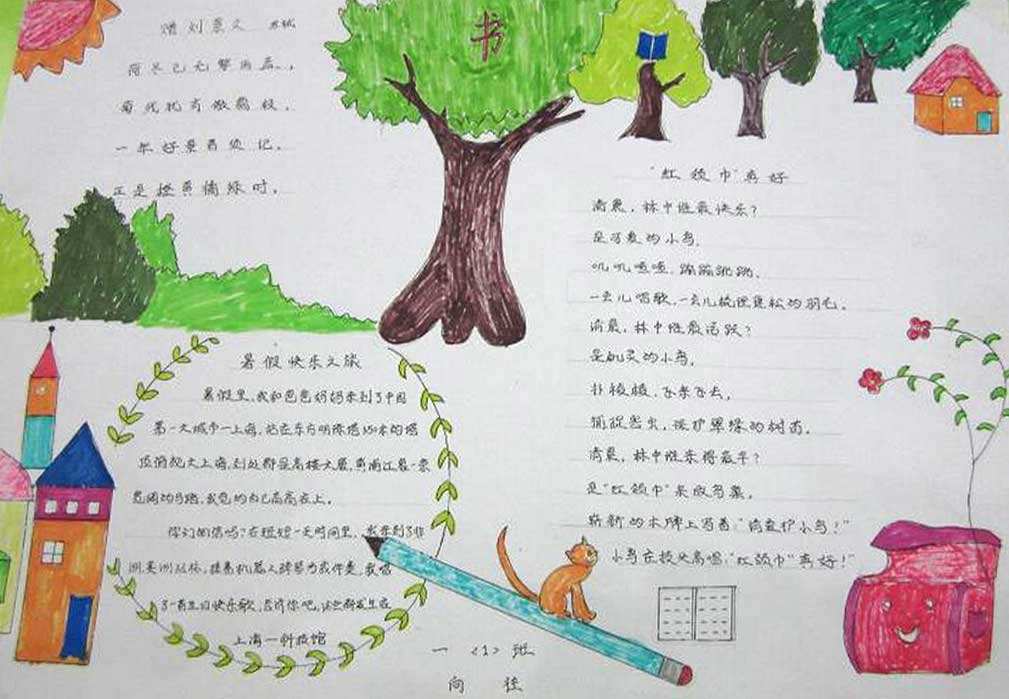 赠刘景文 苏轼
荷尽已无擎雨盖,
菊残犹有傲霜枝。
一年好景君须记,
正是橙黄橘绿时。
书
“红领巾”真好
清晨,林中谁最快乐?
是可爱的小鸟,
叽叽喳喳,蹦蹦跳跳,
一会儿唱歌,一会儿梳理蓬松的羽毛。
清晨,林中谁最活跃?
是机灵的小鸟,
扑棱棱,飞来飞去,
捕捉害虫,保护翠绿的树苗。
清晨,林中谁来得最早?
是“红领巾”来放鸟巢,
崭新的木牌上写着“请爱护小鸟!”
小鸟在枝头高唱:“红领巾”真好!”
暑假快乐之旅
暑假里,我和爸爸妈妈来到了中国
第一大城市—上海,站在东方明珠塔350米的塔
顶俯视大上海,到处都是高楼大厦,黄浦江是一条
宽阔的马路,我觉的自己高高在上。
你们相信吗?在短短一天时间里,我来到了非
洲,美洲丛林,接着机器人弹琴为我伴奏,我唱
了一首生日快乐歌,告诉你吧,这些都发生在
上海—科技馆
一〈1〉班
向 往